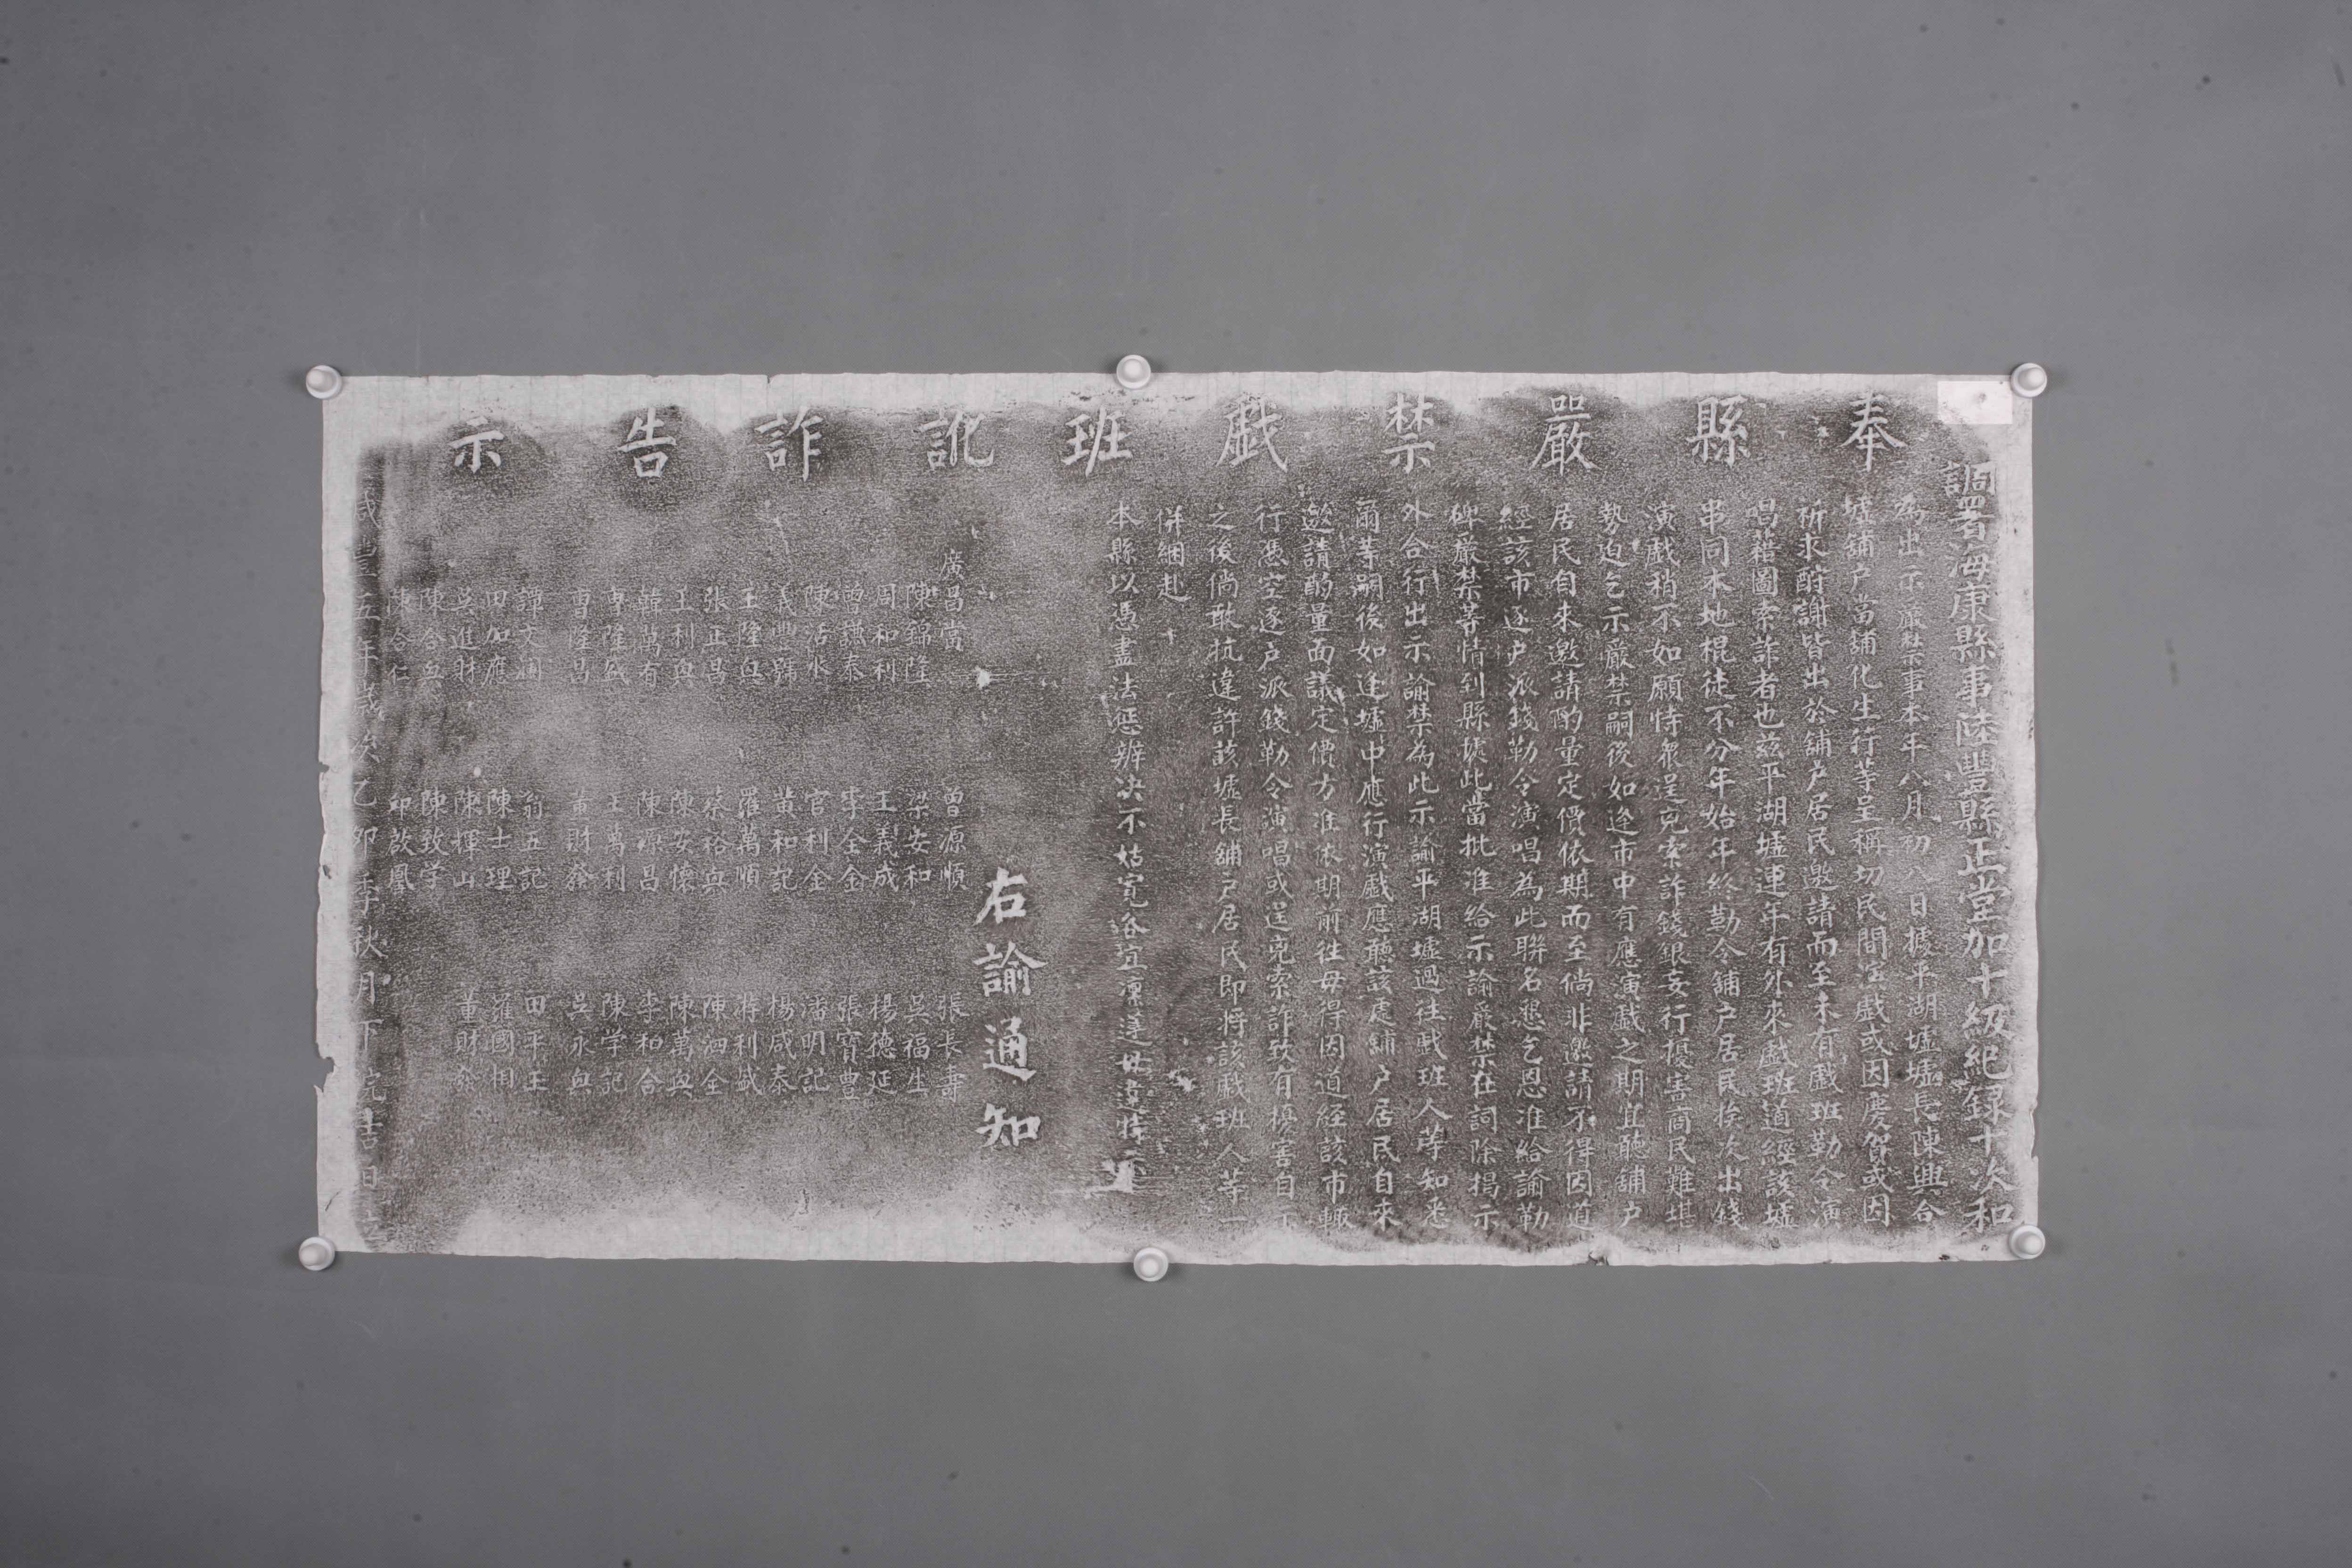 奉縣嚴禁戯班訛詐告示
調署海康縣事陸豐縣正堂加十級紀錄十次和
為出示嚴禁事本年八月初八日據平湖墟墟長陳興合
墟舖户當舖化生行等呈稱切民間演戲或因慶賀或因
祈求酧謝皆出於舖户居民邀請而至未有戲班勒令演
唱藉圖索詐者也兹平湖墟連年有外來戲班道經該墟
串同本地棍徒不分年始年終勒令舖户居民挨次出錢
演戲稍不如願恃衆逞兇索詐錢銀妄行擾害商民難堪
勢迫乞示嚴禁嗣後如逢市中有應演戲之期宜聽舖户
居民自來邀請酌量定價依期而至倘非邀請不得因道
經該市逐户派錢勒令演唱為此聯名懇乞恩准給諭勒
碑嚴禁等情到縣據此當批准給示諭嚴禁在詞除揭示
外合行出示諭禁為此示諭平湖墟過往戯班人等知悉
爾等嗣後如逢墟中應行演戲應聽該處舖户居民自來
邀請酌量面議定價方准依期前往毋得因道經該市輙
行憑空逐户派錢勒令演唱或逞兇索詐致有擾害自示
之後倘敢抗違許該墟長舖户居民即將該戲班人等一
併綑赴
本縣以憑盡法懲辦决不姑寬各宜凜遵毋違特示
右諭通知
廣昌當 曾源順 張長壽
陳錦隆 梁安和 吳福生
周和利 王義成 楊德延
曾謙泰 李全金 張寶豊
陳活水 官利金 潘明記
義豐號 黃和記 楊咸泰
王隆興 羅萬順 游利盛
張正昌 蔡裕興 陳泗全
王利興 陳安懷 陳萬興
韓萬有 陳源昌 李和合
卓隆盛 王萬利 陳学記
曹隆昌 黃財發 吳永興
譚文 翁五記 田平王
田加應 陳士理 羅國相
吳進財 陳輝山 董財發
陳合興 陳致学
陳合仁 邱啟鳳
咸豐五年歲次乙卯季秋月下浣吉日立